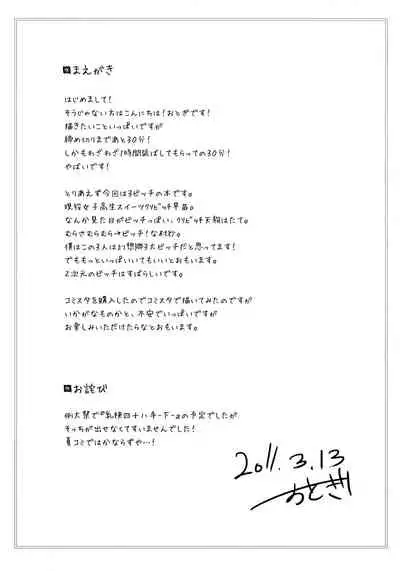 まえがき
はじめまして!
そうじゃない方はこんにちは!おとぎです!
描きたいこといっぱいですが
締め切りまであと30分!
しかもわざわざ1時間延ばしてもらっての30分!
やばいです!
とりあえず今回は3ビッチの本です。
現役女子高生スイーツ(ビッチ早苗。
なんか見た目がビッチっぽい、ビッチ天狗はたて。
むらさむらむら→ビッチ!な村紗。
僕はこの3人は幻想郷3大ビッチだと思ってます!
でももっといっぱいいてもいいとおもいます。
2次元のビッチはすばらしいです。
コミスタを購入したのでコミスタで描いてみたのですが
いかがなものかと、不安でいっぱいですが
お楽しみいただけたらなとおもいます。
お詫び
例大祭で『乳挟四十八手-下-』の予定でしたが
そっちが出せなくてすいませんでした!
夏コミではかならずや…!
2011.3.13
おとぎ